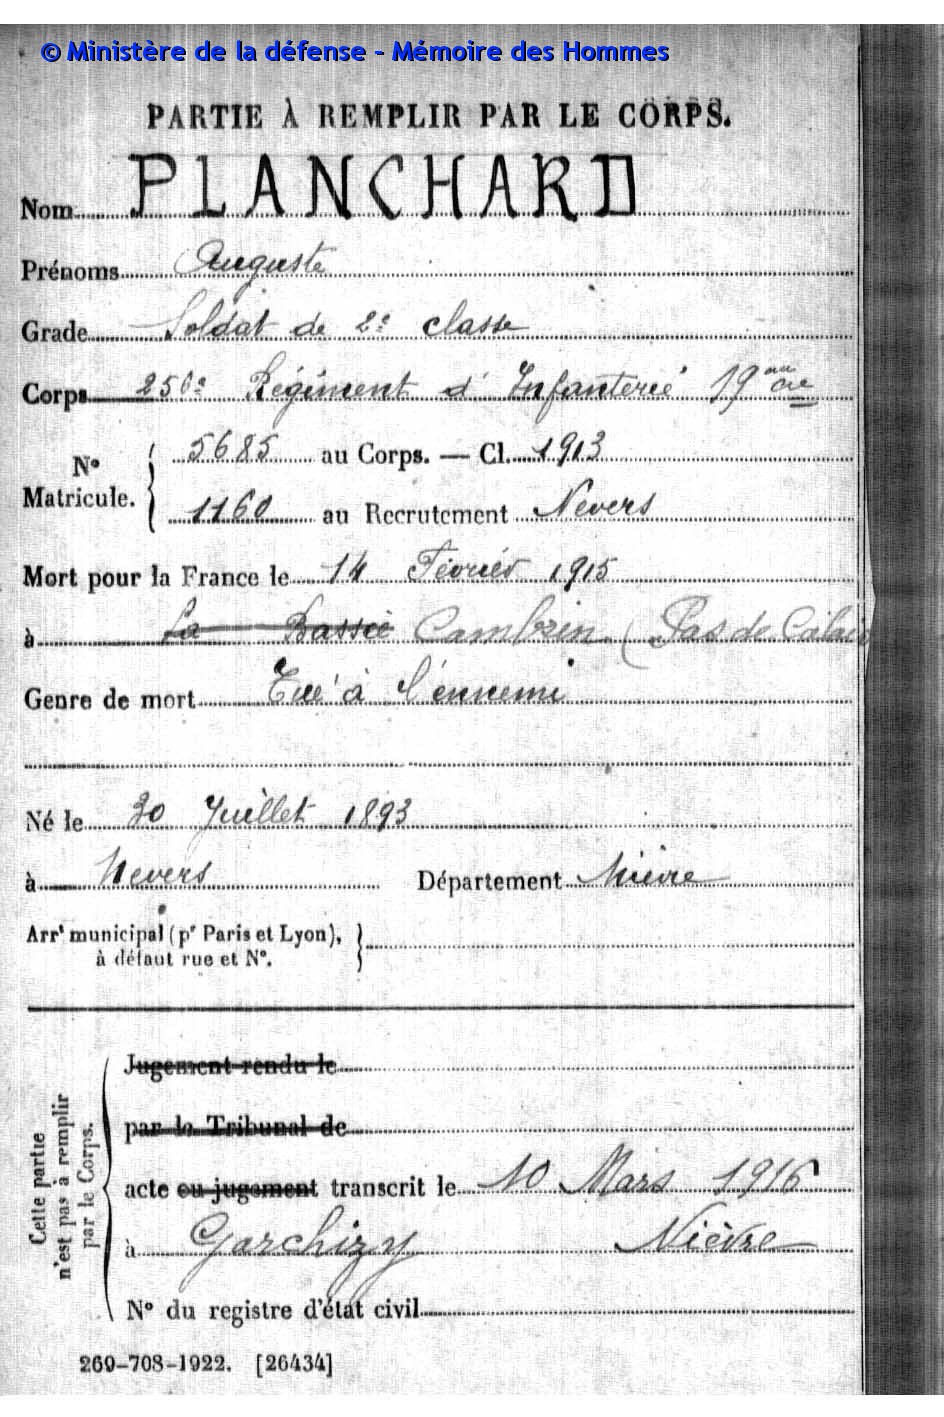 © Ministère de la défense - Mémoire des Hommes
PARTIE À REMPLIR PAR LE CORPS.
Nom PLANCHARD
Prénoms Auguste
Grade Soldat de 2e classe
Corps 256e Régiment d'Infanterie 19me Cie
N° Matricule. { 5685 au Corps. — Cl. 1913
1160 au Recrutement Nevers
Mort pour la France le 14 Février 1915
à La Bassée Cambrin (Pas de Calais
Genre de mort Tué à l'ennemi
Né le 30 Juillet 1893
à Nevers Département Nièvre
Arrt municipal (pr Paris et Lyon), }
à défaut rue et N°.
Cette partie n'est pas à remplir par le Corps.
Jugement rendu le
par le Tribunal de
acte ou jugement transcrit le 10 Mars 1916
à Garchizy Nièvre
N° du registre d'état civil
269-708-1922. [26434]